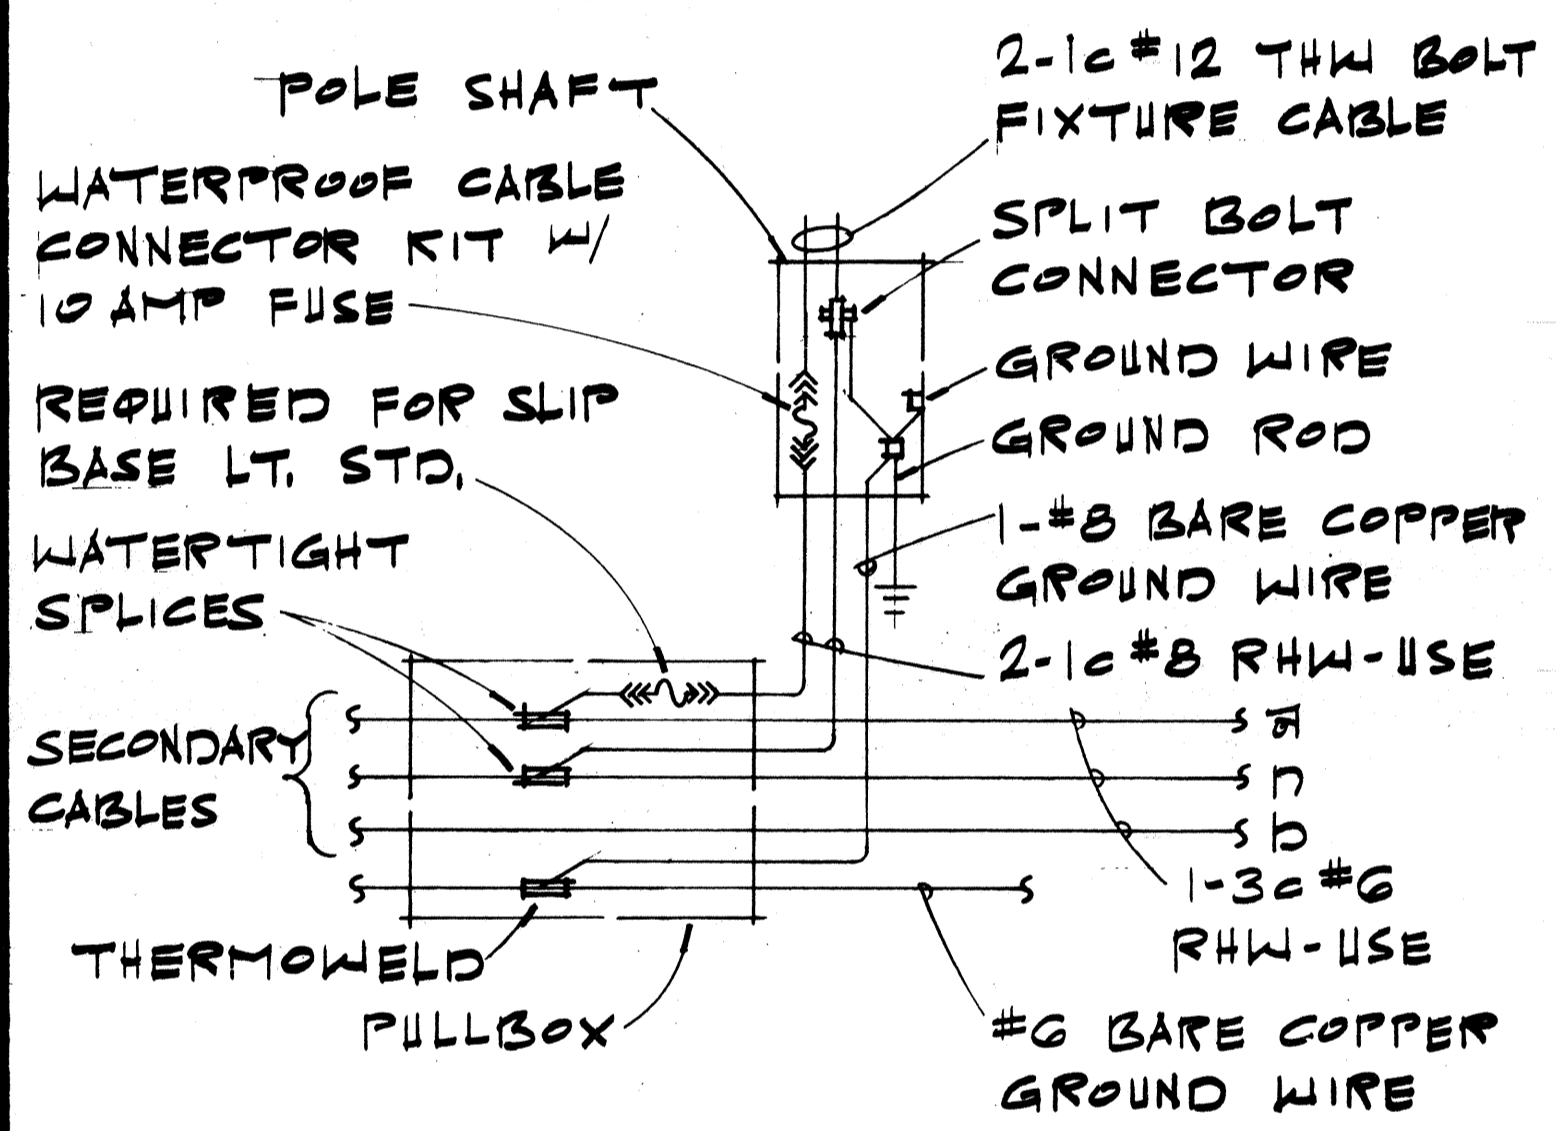 POLE SHAFT
WATERPROOF CABLE
CONNECTOR KIT W/
10 AMP FUSE
REQUIRED FOR SLIP
BASE LT. STD.
WATERTIGHT
SPLICES
SECONDARY
CABLES
THERMOWELD
PULLBOX
2-1c #12 THW BOLT
FIXTURE CABLE
SPLIT BOLT
CONNECTOR
GROUND WIRE
GROUND ROD
1-#8 BARE COPPER
GROUND WIRE
2-1c #8 RHW-USE
a
n
b
1-3c #6
RHW-USE
#6 BARE COPPER
GROUND WIRE